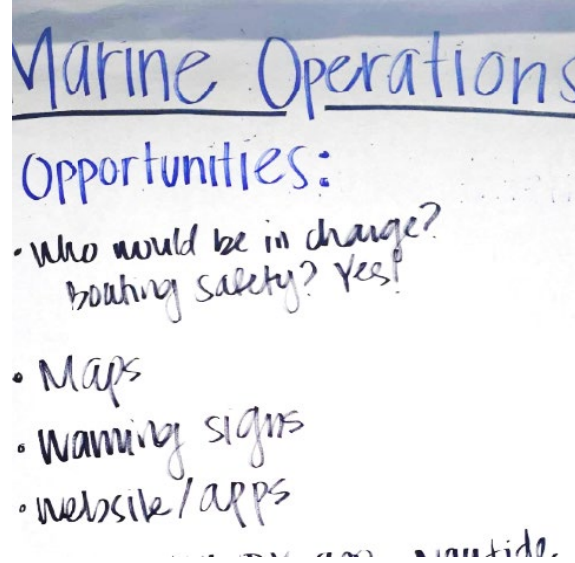 Marine Operations
Opportunities:
• Who would be in charge?
Boating safety? Yes!
• Maps
• Warning signs
• Website/apps